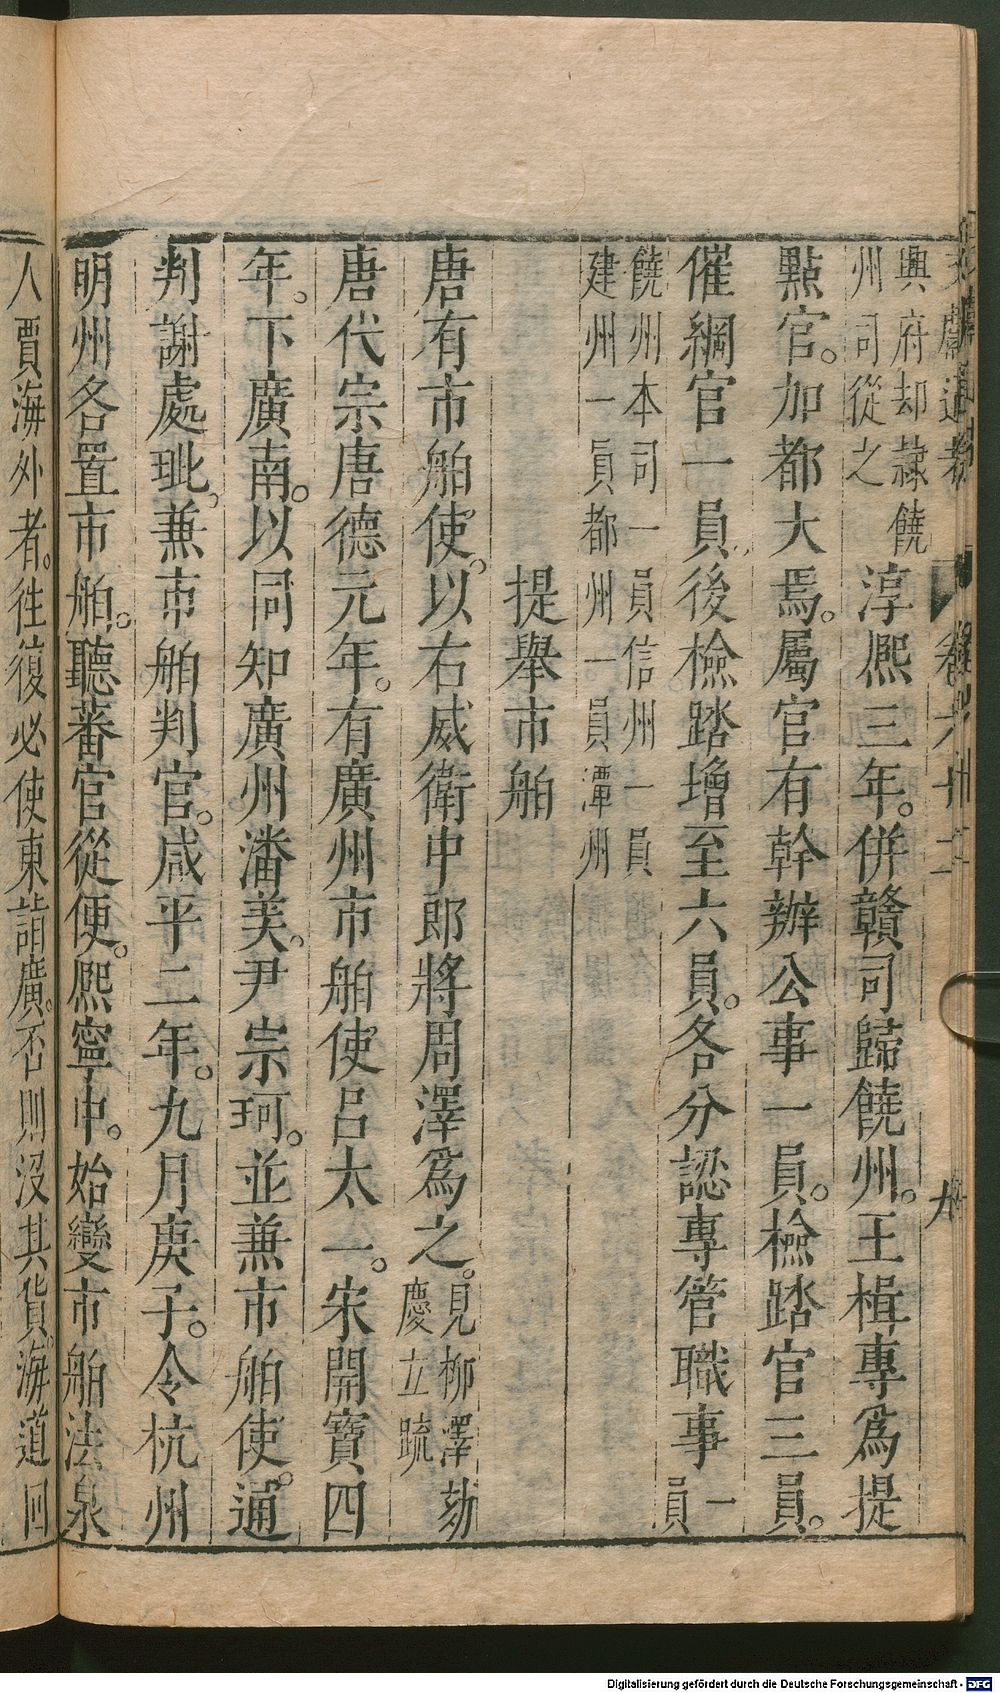 文獻通考 卷六十二 九
興府却隸饒
州司從之
淳熙三年。併贛司歸饒州。王楫專爲提
點官。加都大焉。屬官有幹辦公事一員。檢踏官三員。
催綱官一員。後檢踏增至六員。各分認專管職事
一
員
饒州本司一員信州一員
建州一員都州一員潭州
提舉市舶
唐有市舶使。以右威衛中郎將周澤爲之。
見柳澤劾
慶立䟽
唐代宗唐德元年。有廣州市舶使呂太一。宋開寶四
年。下廣南。以同知廣州潘美。尹宗珂。並兼市舶使。通
判謝處玭。兼市舶判官。咸平二年。九月庚子。令杭州
明州各置市舶。聽蕃官從便。熙寧中。始變市舶法泉
人賈海外者。徃復必使東詣廣。否則沒其貨。海道囘
Digitalisierung gefördert durch die Deutsche Forschungsgemeinschaft - DFG